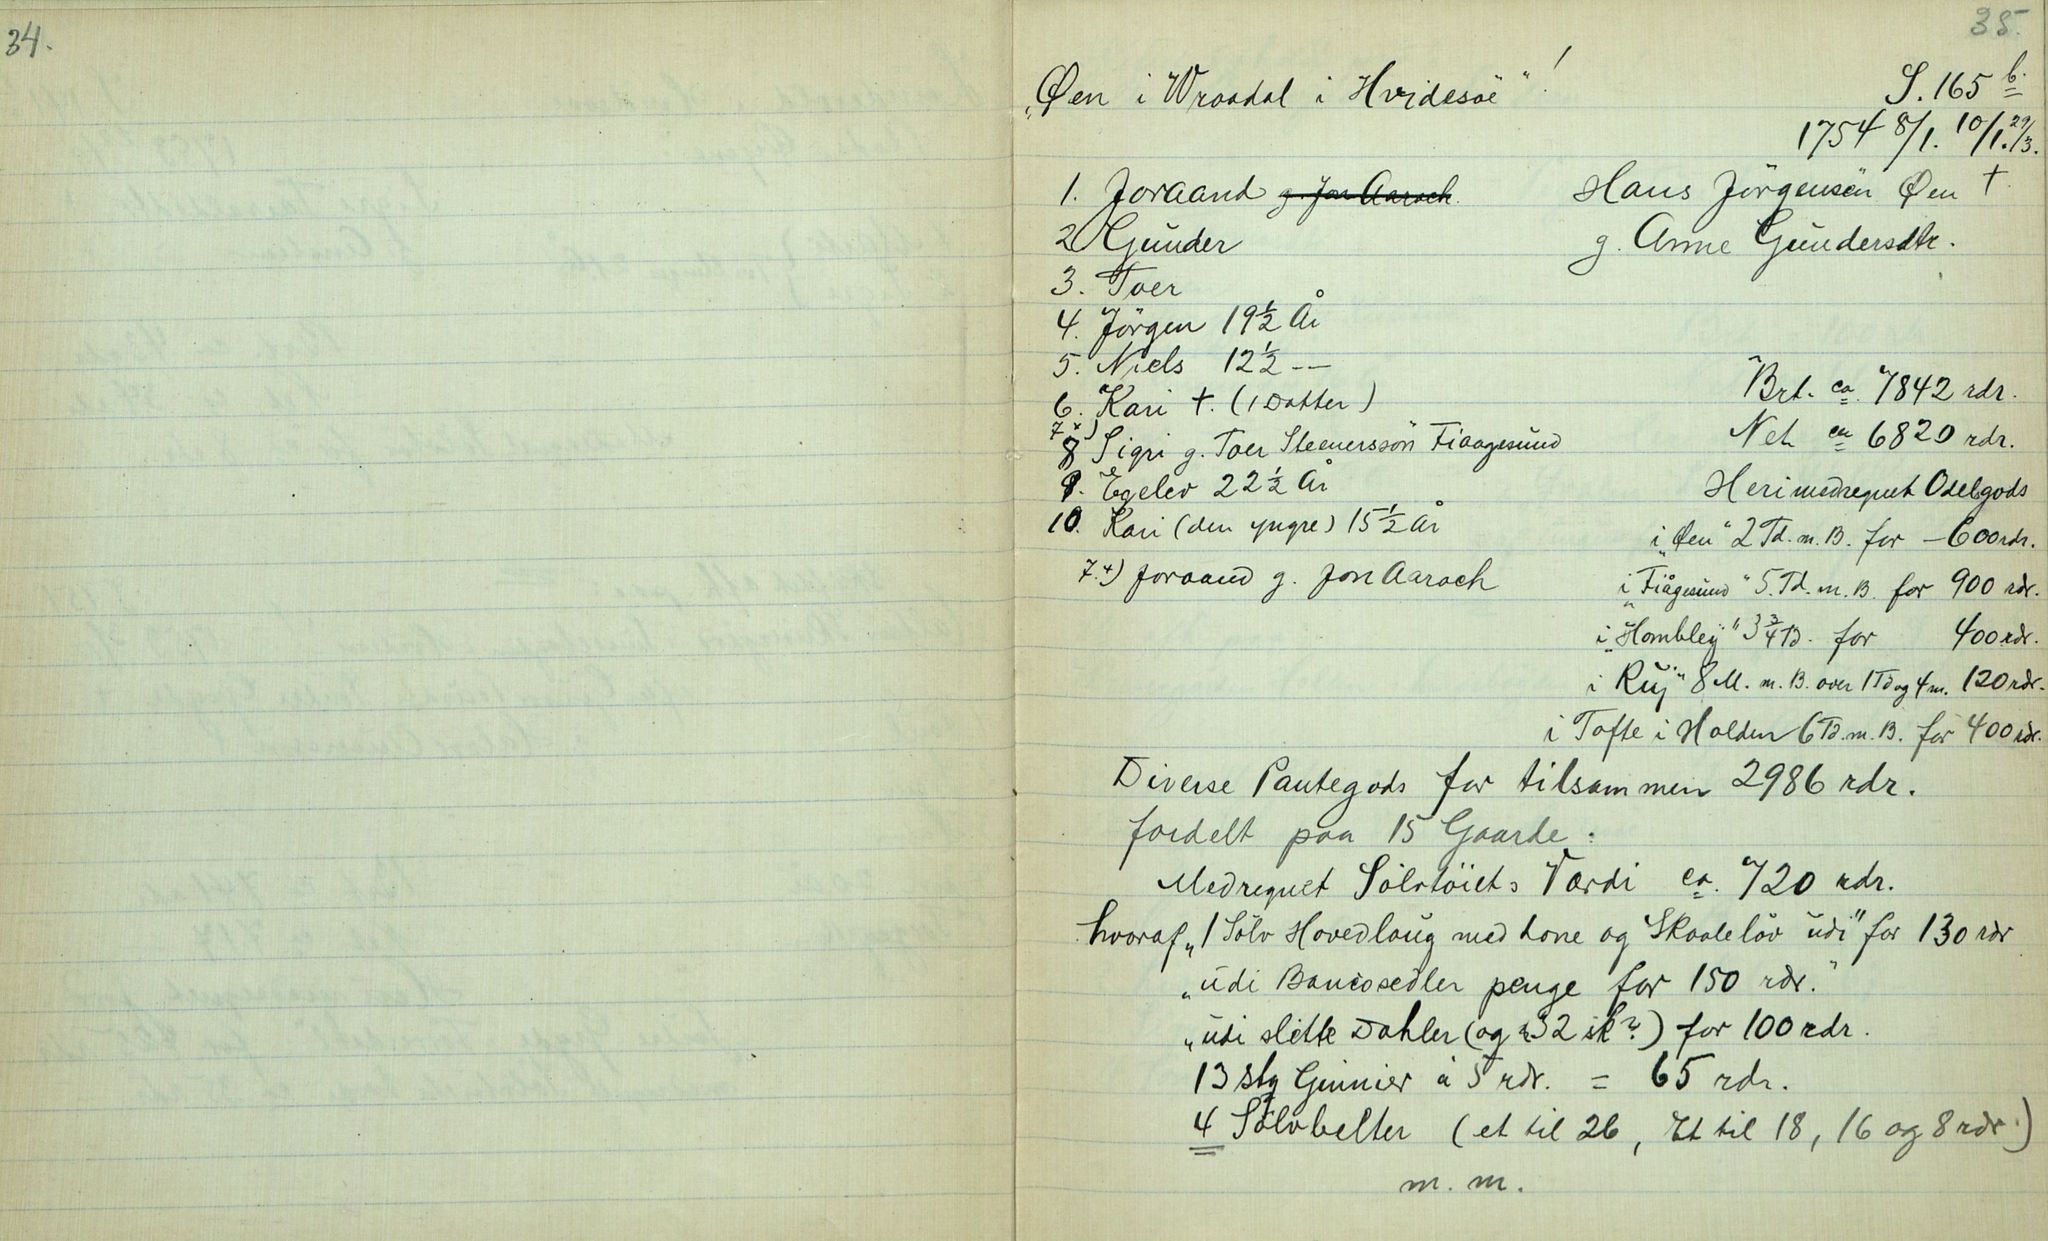 34.
35.
"Øen i Wraadal i Hvidesöe"!
S. 165 b.
1754 8/1. 10/1. 29/3.
1. Joraand g. Jon Aaroch.
Hans Jörgensen Øen †.
2 Gunder
g. Anne Gundersdtr.
3. Toer
4. Jörgen 19½ År
5. Niels 12½ --
6. Kari †. (1 Datter)
Brt. ca. 7842 rdr.
7 x)
8 Sigri g. Toer Steenerssön Fiaagesund
Net. ca 6820 rdr.
9. Egelev 22½ År
Heri medregnet Odelsgods
10. Kari (den yngre) 15½ År
i "Øen" 2 Td. m. B. for - 600 rdr.
7. x) Joraand g. Jon Aaroch
i "Fiågesund" 5. Td. m. B. for 900 rdr.
i "Hombley" 3¾ TB. for 400 rdr.
i Ruj" 8 M. m. B. over 1 Td og 4 m. 120 rdr.
i Tofte i Holden 6 Td. m. B. for 400 rdr.
Diverse Pantegods for tilsammen 2986 rdr.
fordelt paa 15 Gaarde.
Medregnet Sölvtöiets Værdi ca. 720 rdr.
hvoraf "1 Sölv Hovedlaug med hone og Skaaleløv udi" for 130 rdr
"udi Bancosedler penge for 150 rdr."
"udi slette Dahler (og 32 sk?) for 100 rdr.
13 stg Ginnier à 5 rdr. = 65 rdr.
4 Sölvbelter (et til 26, Et til 18, 16 og 8 rdr.)
m. m.